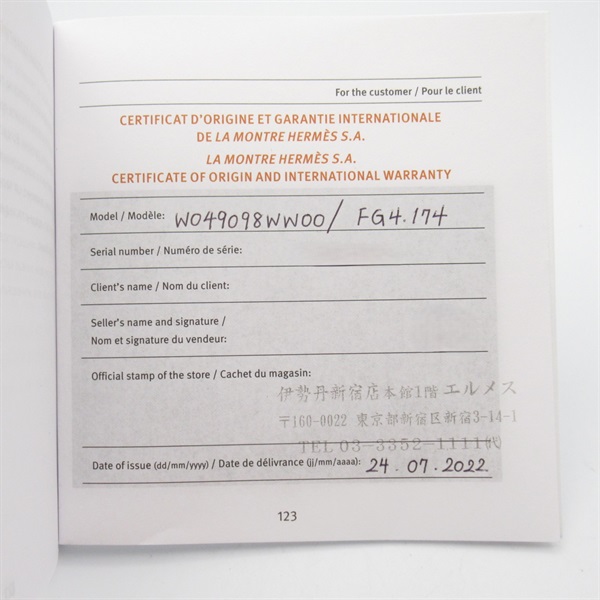 For the customer / Pour le client
CERTIFICAT D'ORIGINE ET GARANTIE INTERNATIONALE
DE LA MONTRE HERMÈS S.A.
LA MONTRE HERMÈS S.A.
CERTIFICATE OF ORIGIN AND INTERNATIONAL WARRANTY
Model / Modèle: W049098WW00/ FG4.174
Serial number / Numéro de série:
Client's name / Nom du client:
Seller's name and signature /
Nom et signature du vendeur:
Official stamp of the store / Cachet du magasin:
伊勢丹新宿店本館1階エルメス
〒160-0022 東京都新宿区新宿3-14-1
TEL 03-3352-1111㈹
Date of issue (dd/mm/yyyy) / Date de délivrance (jj/mm/aaaa): 24.07.2022
123